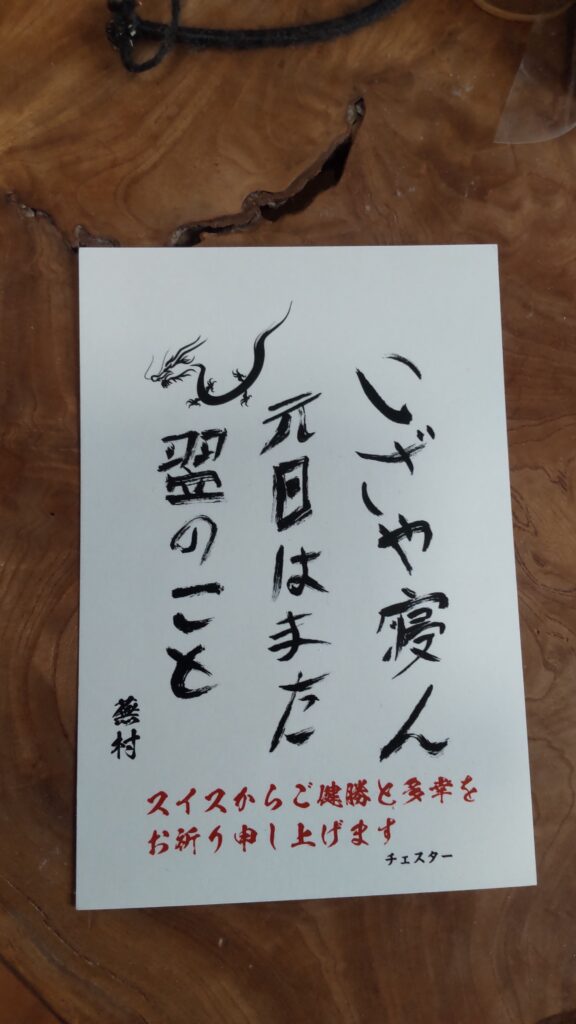 いざや寝ん
元日はまた
翌のこと
蕪村
スイスからご健勝と多幸を
お祈り申し上げます
チェスター